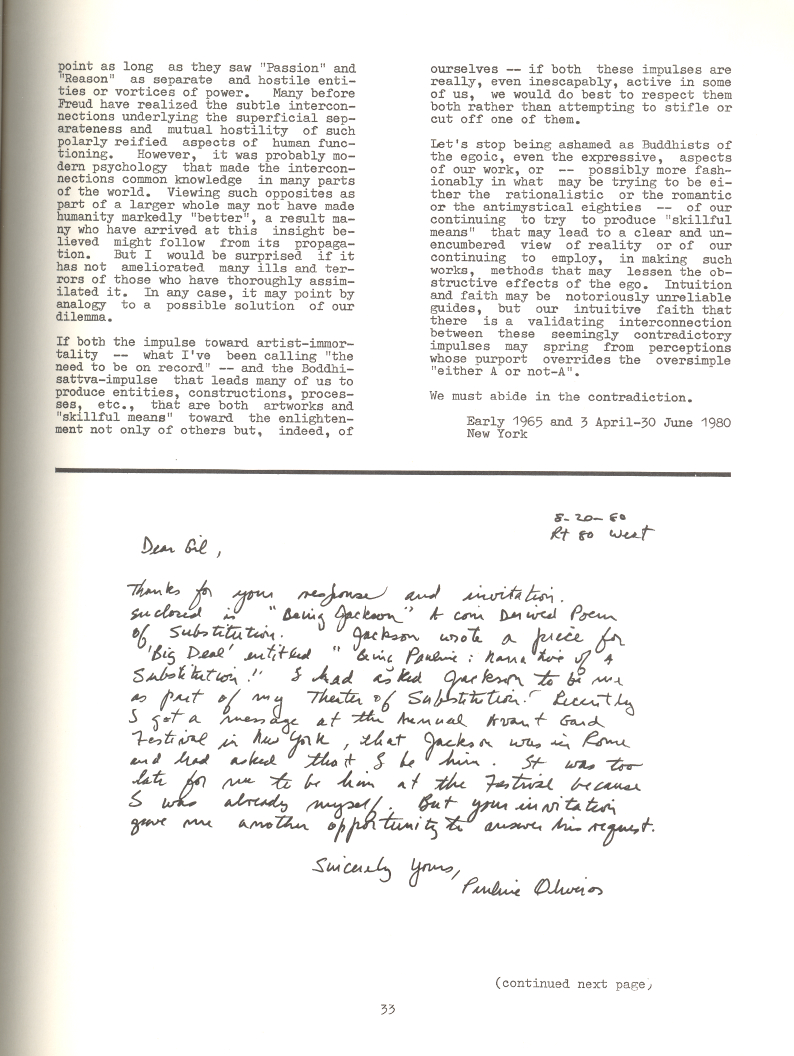 point as long as they saw "Passion" and
"Reason" as separate and hostile enti-
ties or vortices of power. Many before
Freud have realized the subtle intercon-
nections underlying the superficial sep-
arateness and mutual hostility of such
polarly reified aspects of human func-
tioning. However, it was probably mo-
dern psychology that made the intercon-
nections common knowledge in many parts
of the world. Viewing such opposites as
part of a larger whole may not have made
humanity markedly "better", a result ma-
ny who have arrived at this insight be-
lieved might follow from its propaga-
tion. But I would be surprised if it
has not ameliorated many ills and ter-
rors of those who have thoroughly assim-
ilated it. In any case, it may point by
analogy to a possible solution of our
dilemma.
If both the impulse toward artist-immor-
tality -- what I've been calling "the
need to be on record" -- and the Boddhi-
sattva-impulse that leads many of us to
produce entities, constructions, proces-
ses, etc., that are both artworks and
"skillful means" toward the enlighten-
ment not only of others but, indeed, of
ourselves -- if both these impulses are
really, even inescapably, active in some
of us, we would do best to respect them
both rather than attempting to stifle or
cut off one of them.
Let's stop being ashamed as Buddhists of
the egoic, even the expressive, aspects
of our work, or -- possibly more fash-
ionably in what may be trying to be ei-
ther the rationalistic or the romantic
or the antimystical eighties -- of our
continuing to try to produce "skillful
means" that may lead to a clear and un-
encumbered view of reality or of our
continuing to employ, in making such
works, methods that may lessen the ob-
structive effects of the ego. Intuition
and faith may be notoriously unreliable
guides, but our intuitive faith that
there is a validating interconnection
between these seemingly contradictory
impulses may spring from perceptions
whose purport overrides the oversimple
"either A or not-A".
We must abide in the contradiction.
Early 1965 and 3 April-30 June 1980
New York
8-20-80
Rt 80 West
Dear Gil,
Thanks for your response and invitation.
Enclosed is "Being Jackson" A coin Derived Poem
of Substitution. Jackson wrote a piece for
'Big Deal' entitled "Being Pauline: Narrative of a
Substitution." I had asked Jackson to be me
as part of my Theater of Substitution. Recently
I got a message at the Annual Avant Gard
Festival in New York, that Jackson was in Rome
and had asked that I be him. It was too
late for me to be him at the Festival because
I was already myself. But your invitation
gave me another opportunity to answer his request.
Sincerely Yours,
Pauline Oliveros
(continued next page)
33